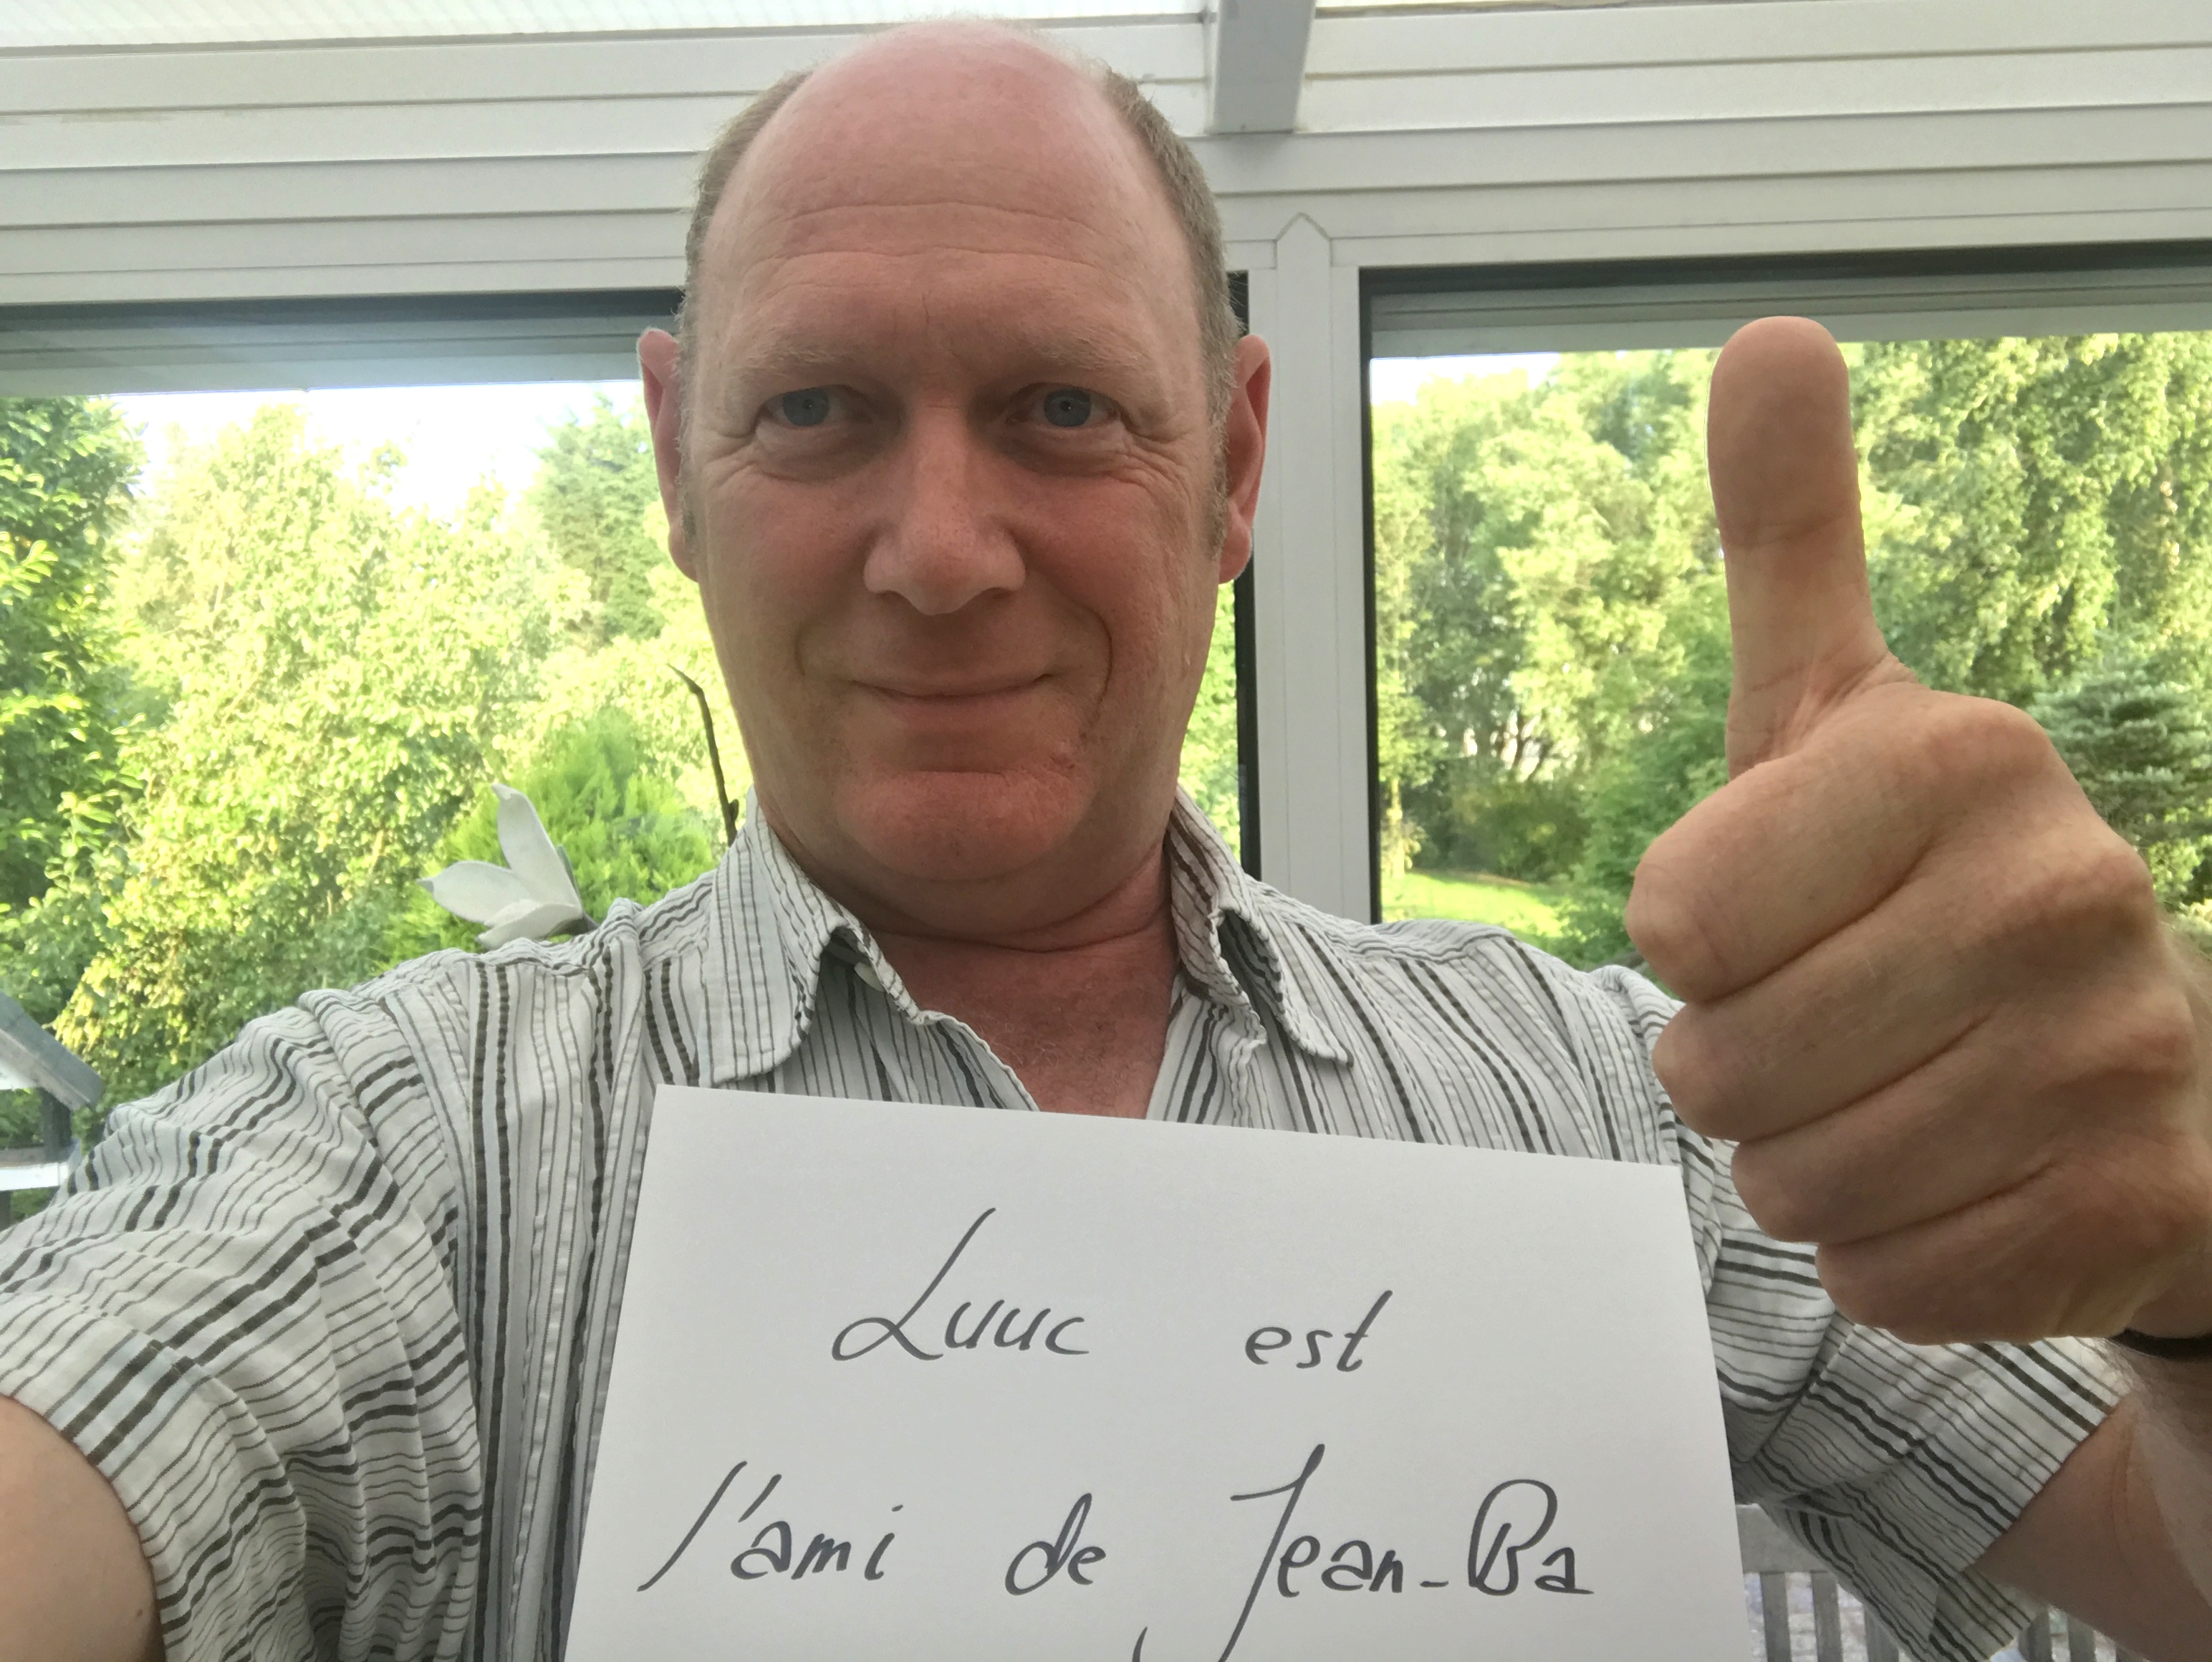 Luuc est
l'ami de Jean-Ba